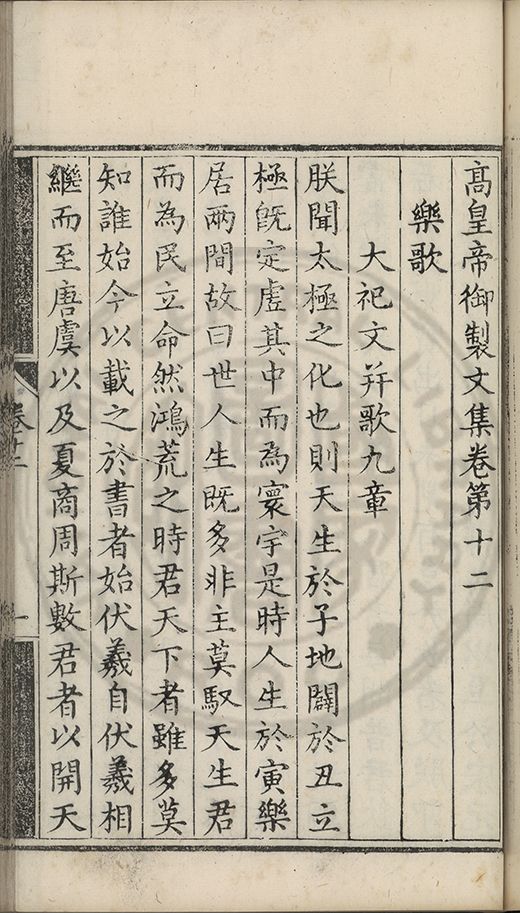 高皇帝御製文集卷第十二
樂歌
大祀文并歌九章
朕聞太極之化也則天生於子地闢於丑立
極旣定虛其中而為寰宇是時人生於寅樂
居兩間故曰世人生既多非主莫馭天生君
而為民立命然鴻荒之時君天下者雖多莫
知誰始今以載之於書者始伏羲自伏羲相
繼而至唐虞以及夏商周斯數君者以開天
卷十二
一